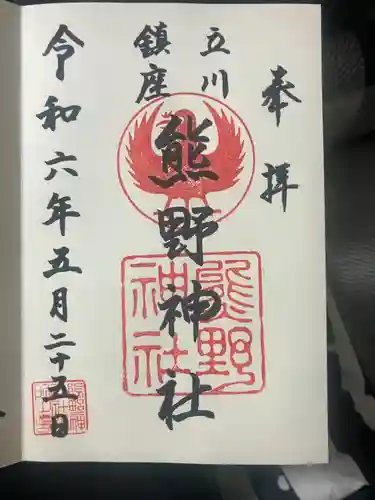 奉拝
立川
鎮座
熊野神社
令和六年五月二十五日
熊野
神社